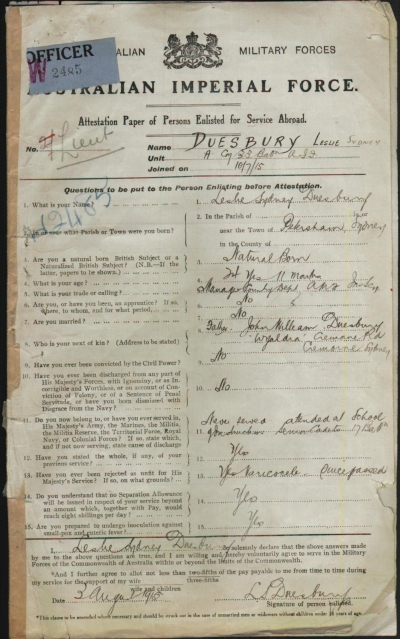 OFFICER
W 2485
AUSTRALIAN MILITARY FORCES
AUSTRALIAN IMPERIAL FORCE.
Attestation Paper of Persons Enlisted for Service Abroad.
No. Lieut
Name DUESBURY LESLIE SYDNEY
Unit A Coy 33 Batt A.I.F
Joined on 10/7/15
Questions to be put to the Person Enlisting before Attestation.
1. What is your Name? 1. Leslie Sydney Duesbury
2. In or near what Parish or Town were you born? 2. In the Parish of
near the Town of Petersham, Sydney
in the County of
3. Are you a natural born British Subject or a Naturalised British Subject? (N.B.—If the latter, papers to be shown.) 3. Natural Born
4. What is your age? 4. Yrs 11 Months
5. What is your trade or calling? 5. Manager Country Dept.
6. Are you, or have you been, an apprentice? If so, where, to whom, and for what period? 6. No
7. Are you married? 7. No
8. Who is your next of kin? (Address to be stated) 8. Father John William Duesbury
Cremorne Rd
Cremorne Sydney
9. Have you ever been convicted by the Civil Power? 9. No
10. Have you ever been discharged from any part of His Majesty's Forces, with Ignominy, or as Incorrigible and Worthless, or on account of Conviction of Felony, or of a Sentence of Penal Servitude, or have you been dismissed with Disgrace from the Navy? 10. No
11. Do you now belong to, or have you ever served in, His Majesty's Army, the Marines, the Militia, the Militia Reserve, the Territorial Force, Royal Navy, or Colonial Forces? If so, state which, and if not now serving, state cause of discharge 11. Have served attended at School
Senior Cadets
12. Have you stated the whole, if any, of your previous service? 12. Yes
13. Have you ever been rejected as unfit for His Majesty's Service? If so, on what grounds? 13. Yes Varicocele Once passed
14. Do you understand that no Separation Allowance will be issued in respect of your service beyond an amount which, together with Pay, would reach eight shillings per day? 14. Yes
15. Are you prepared to undergo inoculation against small-pox and enteric fever? 15. Yes
I, Leslie Sydney Duesbury do solemnly declare that the above answers made by me to the above questions are true, and I am willing and hereby voluntarily agree to serve in the Military Forces of the Commonwealth of Australia within or beyond the limits of the Commonwealth.
*And I further agree to allot not less than two-fifths of the pay payable to me from time to time during my service for the support of my wife
three-fifths
wife and children
Date 3 August 1915 L S Duesbury
Signature of person enlisted.